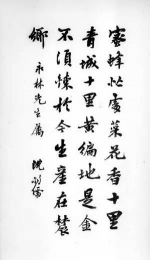 蜜蜂忙處菜花香十里
青城十里黄徧地是金
不須煉於今生產在農
鄉 永林先生屬 沈鈞儒